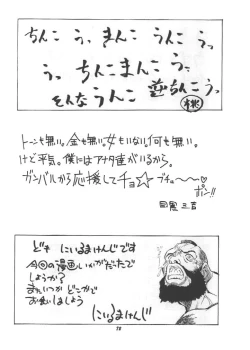 ちんこ う、まんこ うんこ うっ
う。ちんこまんこ う。
そんなうんこ 並ちんこ う。
桃
トーンも無い。金も無い。女もいない。何も無い。
けど平気。僕にはアナタ達がいるから。
ガンバルから応援してチョ☆ブチュ〜〜♡
ポン!!
どもにいるまけんじです
今回の漫画いかがだたで
しょうか?
またいつか どこかで
お会いしましょう
にいるまけんじ
78